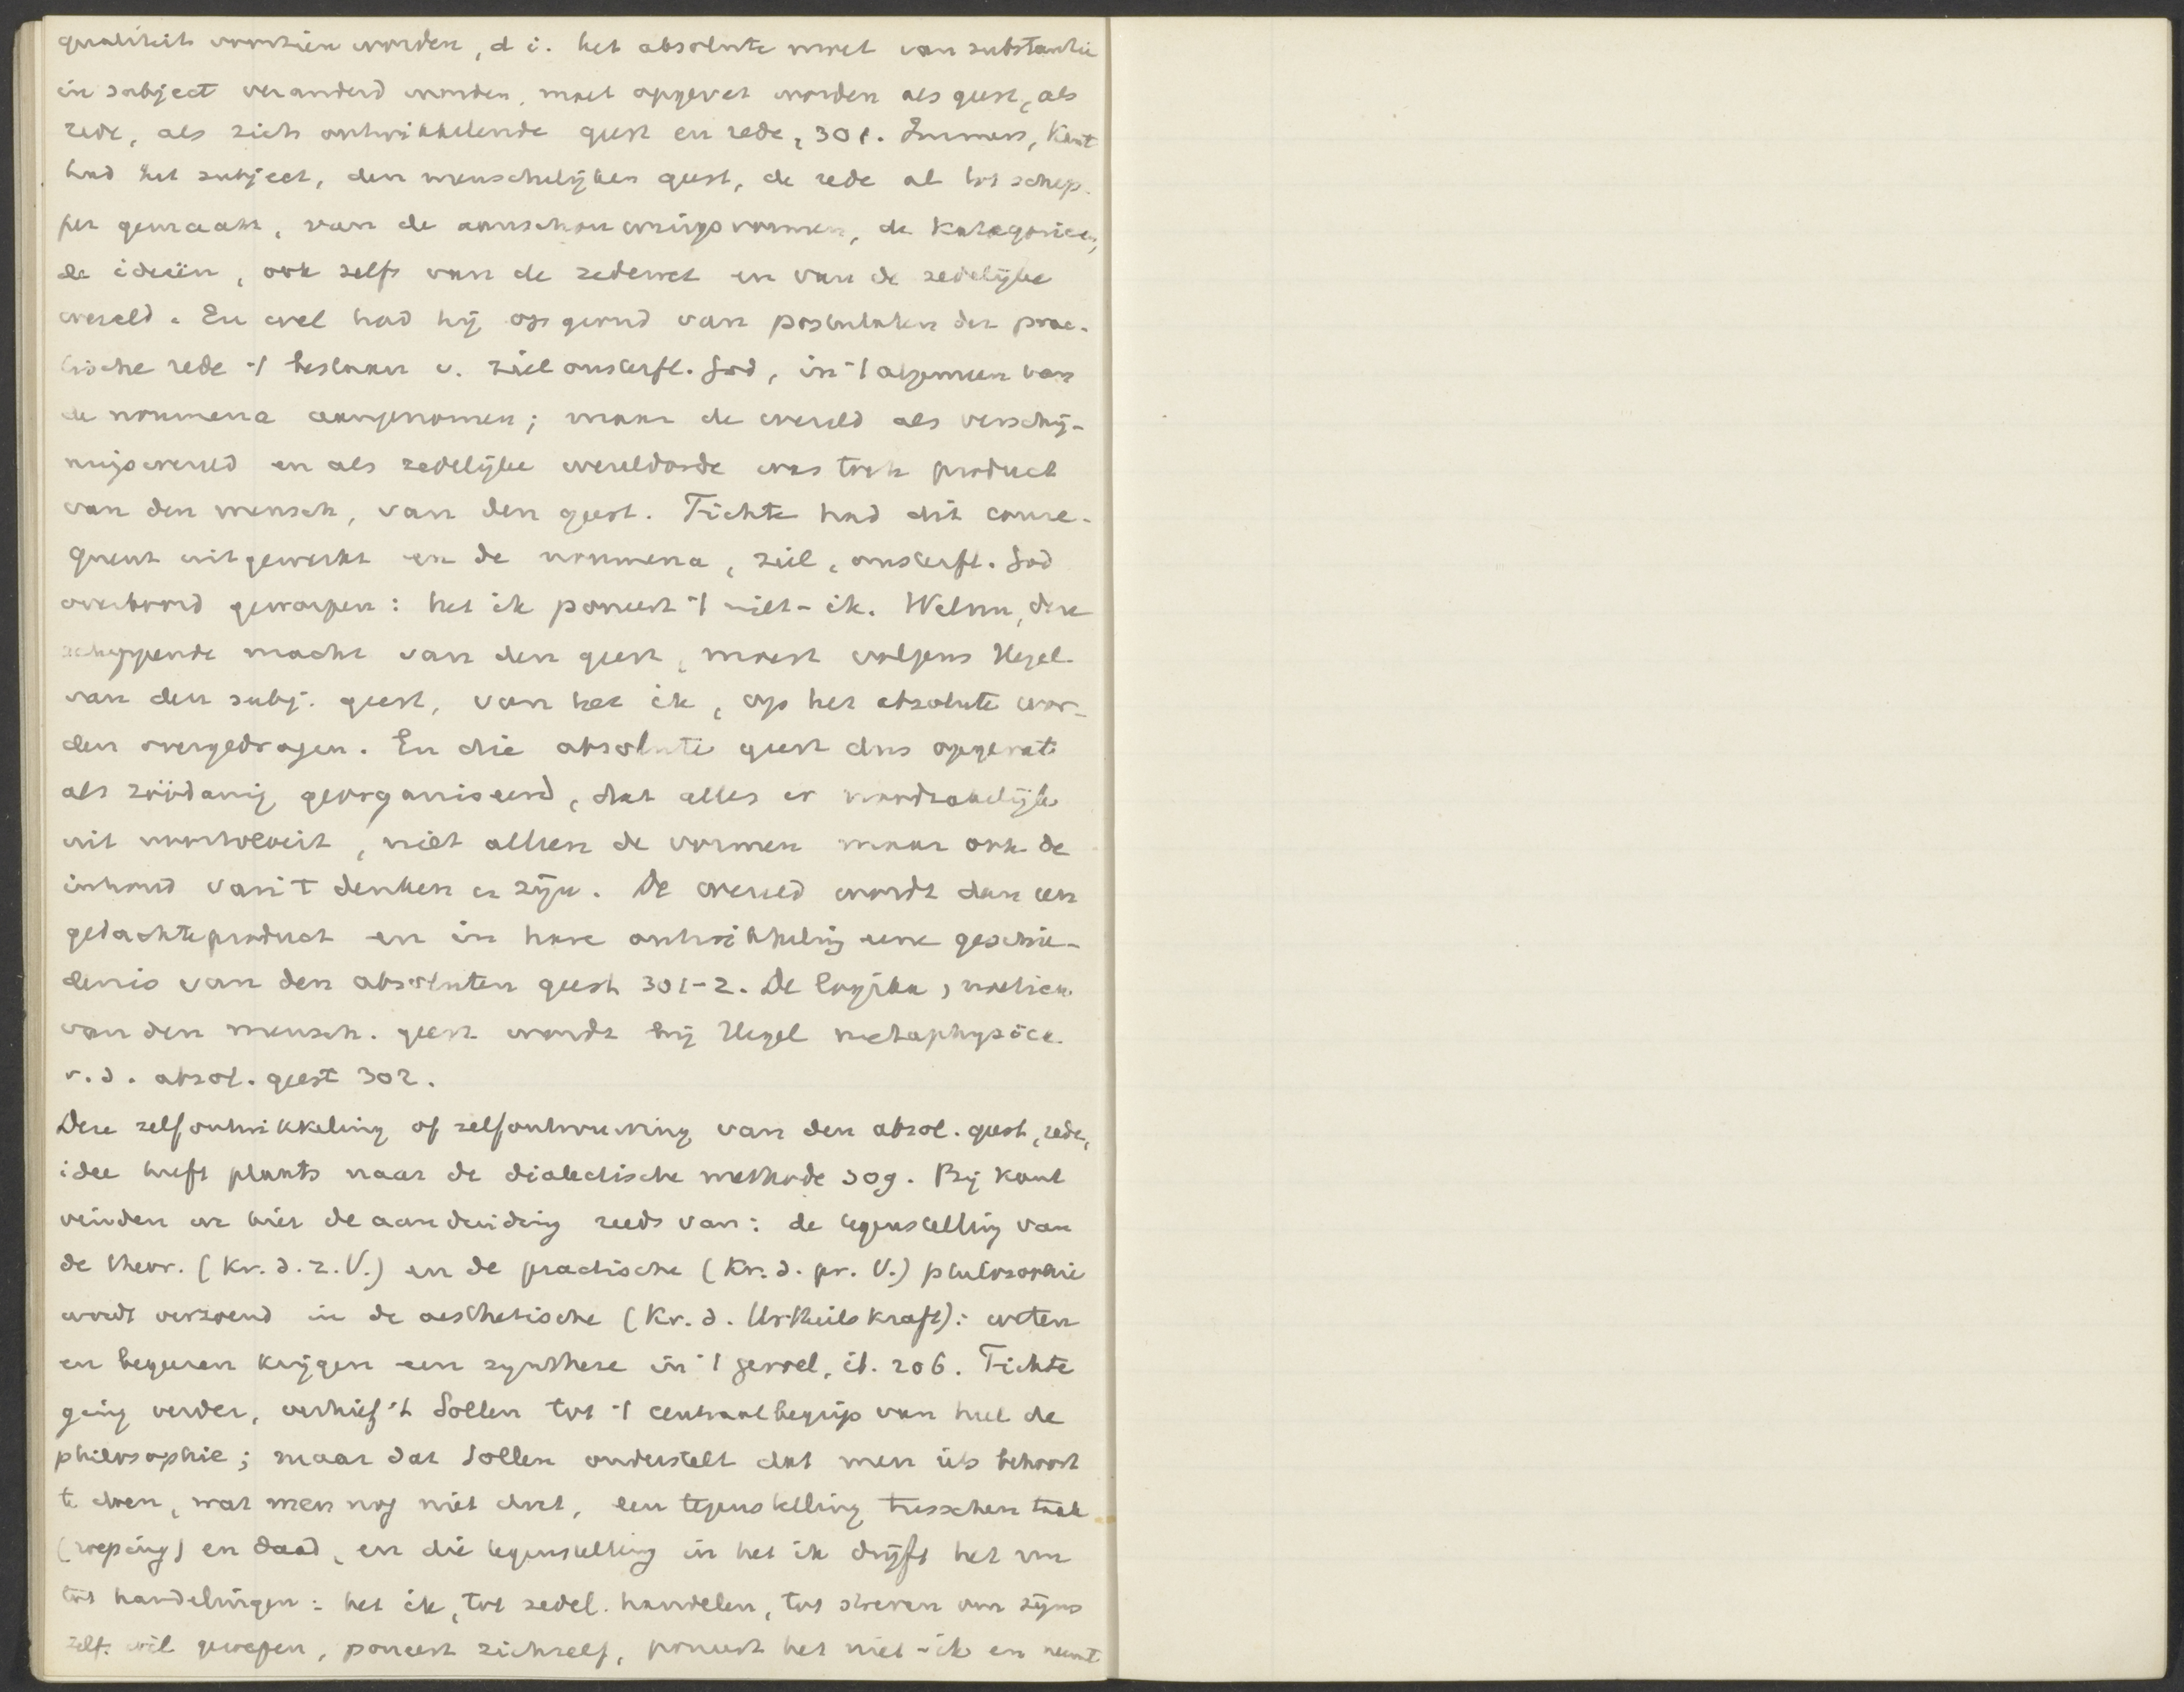 qualiteit voorzien worden, d i. het absolute moet van substantie
in subject veranderd worden, moet opgevat worden als geest, als
rede, als zich ontwikkelende geest en rede, 301. Immers, Kant
had het subject, den menschelijken geest, de rede al tot schep-
per gemaakt, van de aanschouwingsvormen, de kategorieen,
de ideeën, ook zelfs van de zedewet en van de zedelijke
wereld. En wel had hij op grond van postulaten der prac-
tische rede 't bestaan v. ziel onsterfl. God, in 't algemeen van
de noumena aangenomen; maar de wereld als verschij-
ningswereld en als zedelijke wereldorde was toch product
van den mensch, van den geest. Fichte had dit conse-
quent uitgewerkt en de noumena, ziel, onsterfl. God
overboord geworpen: het ik poneert 't niet-ik. Welnu, deze
scheppende macht van den geest, moest volgens Hegel
van den subj. geest, van het ik, op het absolute wor-
den overgedragen. En die absolute geest dus opgevat
als zóódanig georganiseerd, dat alles er noodzakelijk
uit voortvloeit, niet alleen de vormen maar ook de
inhoud van 't denken en zijn. De wereld wordt dan een
gedachteproduct en in hare ontwikkeling eene geschie-
denis van den absoluten geest 301-2. De logika,
van den mensch. geest wordt bij Hegel metaphysica
v. d. absol. geest 302.
Deze zelfontwikkeling of zelfontvouwing van den absol. geest, rede,
idee heeft plaats naar de dialectische methode 309. Bij Kant
vinden we hier de aanduiding reeds van: de tegenstelling van
de theor. (Kr. d. r. V.) en de practische (Kr. d. pr. V.) philosophie
wordt verzoend in de aesthetische (Kr. d. Urtheilskraft): weten
en begeeren krijgen een synthese in 't gevoel, ib. 206. Fichte
ging verder, verhief 't Sollen tot 't centraalbegrip van heel de
philosophie; maar dat Sollen onderstelt dat men iets behoort
te doen, wat men nog niet doet, een tegenstelling tusschen taak
(roeping) en daad, en die tegenstelling in het ik drijft het voort
tot handelingen: het ik, tot zedel. handelen, tot streven om zijns
zelfs wil geroepen, poneert zichzelf, poneert het niet-ik en neemt